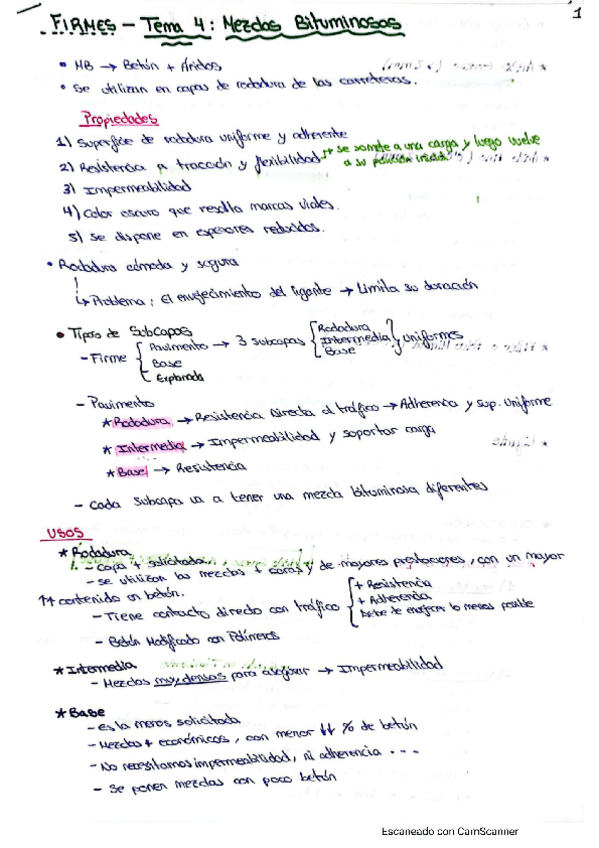 1
FIRMES - Tema 4: Mezclas Bituminosas
• MB → Betún + Áridos
• Se utilizan en capas de rodadura de las carreteras.
Propiedades
1) Superficie de rodadura uniforme y adherente
2) Resistencia a tracción y flexibilidad → se somete a una carga y luego vuelve
a su posición inicial
3) Impermeabilidad
4) Color oscuro que resalta marcas viales.
5) Se dispone en espesores reducidos.
• Rodadura cómoda y segura
↳ Problema: El envejecimiento del ligante → Limita su duración
• Tipos de Subcapas
- Firme { Pavimento → 3 subcapas { Rodadura Intermedia Base } y uniformes
Base
Explanada
- Pavimento
* Rodadura → Resistencia directa al tráfico → Adherencia y sup. uniforme
* Intermedia → Impermeabilidad y soportar carga
* Base → Resistencia
- Cada subcapa va a tener una mezcla bituminosa diferentes
USOS
* Rodadura
- Capa + solicitada.
- se utilizan las mezclas + caras y de mayores prestaciones, con un mayor
↑↑ contenido en betún.
- Tiene contacto directo con tráfico { + Resistencia
+ Adherencia
Debe de envejecer lo menos posible
- Betún Modificado con Polímeros
* Intermedia
- Mezclas muy densas para asegurar → Impermeabilidad
* Base
- Es la menos solicitada
- Mezclas + económicas, con menor ↓↓ % de betún
- No necesitamos impermeabilidad, ni adherencia ...
- Se ponen mezclas con poco betún
Escaneado con CamScanner